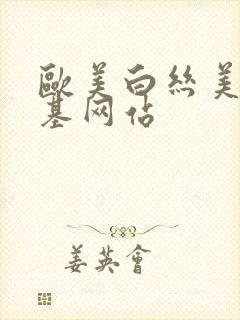 歐美白丝美
基网站
姜英會